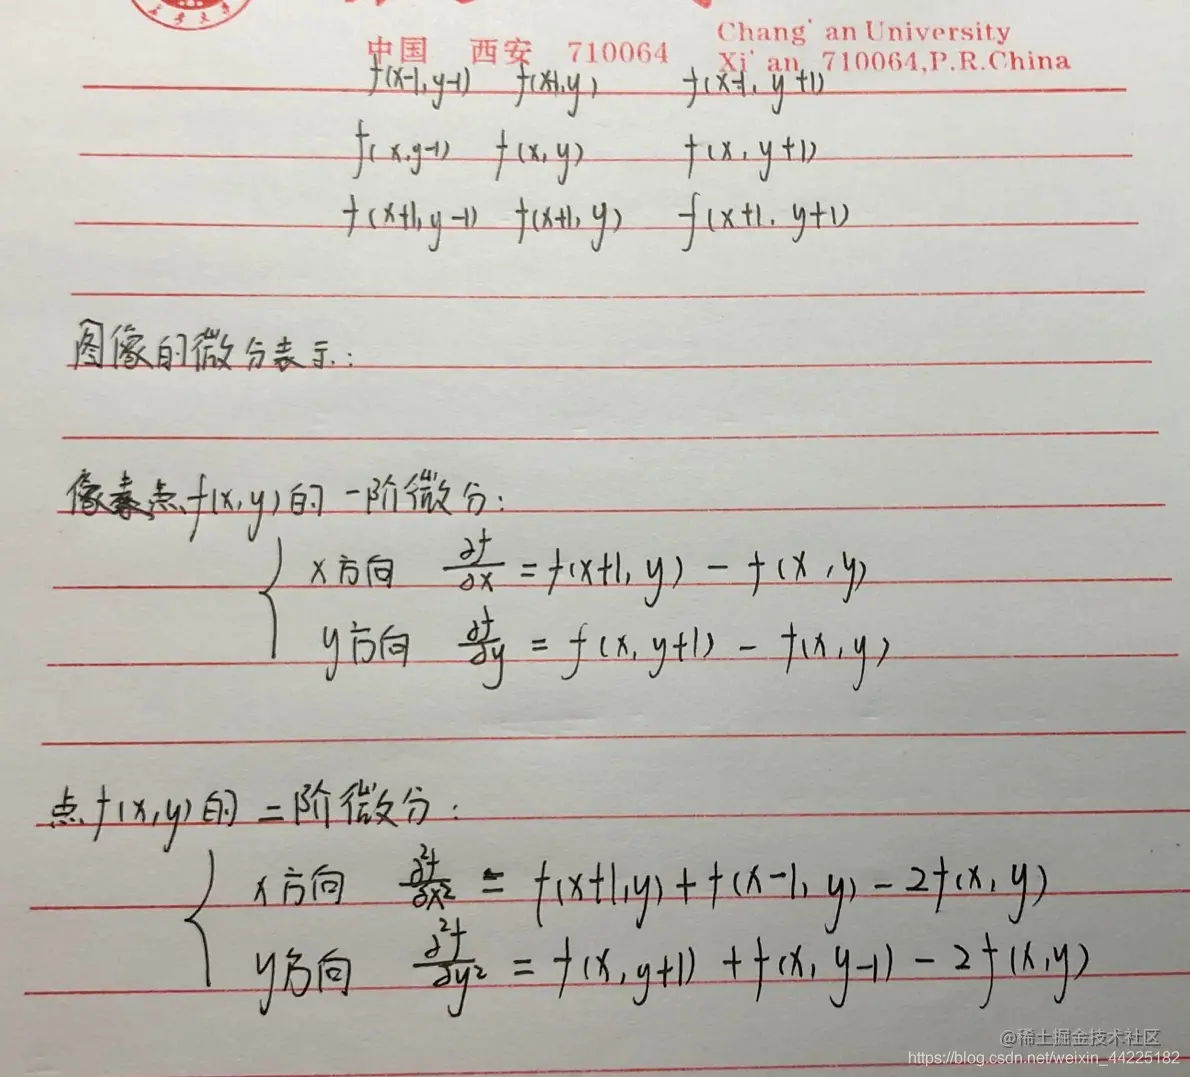 Chang' an University
中国 西安 710064 Xi' an, 710064,P.R.China
f(x-1,y-1) f(x-1,y) f(x-1, y+1)
f(x,y-1) f(x,y) f(x, y+1)
f(x+1,y-1) f(x+1,y) f(x+1, y+1)
图像的微分表示:
像素点f(x,y)的一阶微分:
x方向 ∂f/∂x = f(x+1,y) - f(x,y)
y方向 ∂f/∂y = f(x,y+1) - f(x,y)
点f(x,y)的二阶微分:
x方向 ∂²f/∂x² = f(x+1,y) + f(x-1,y) - 2f(x,y)
y方向 ∂²f/∂y² = f(x,y+1) + f(x,y-1) - 2f(x,y)
@稀土掘金技术社区
https://blog.csdn.net/weixin_44225182